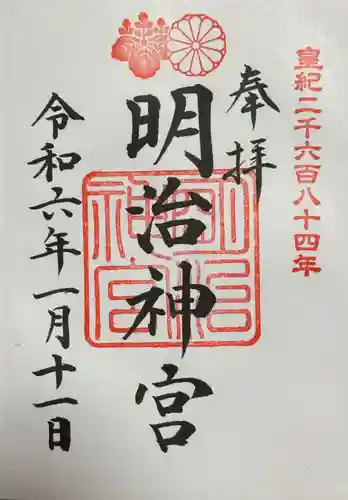 皇紀二千六百八十四年
奉拝
明治神宮
明治神宮
令和六年一月十一日